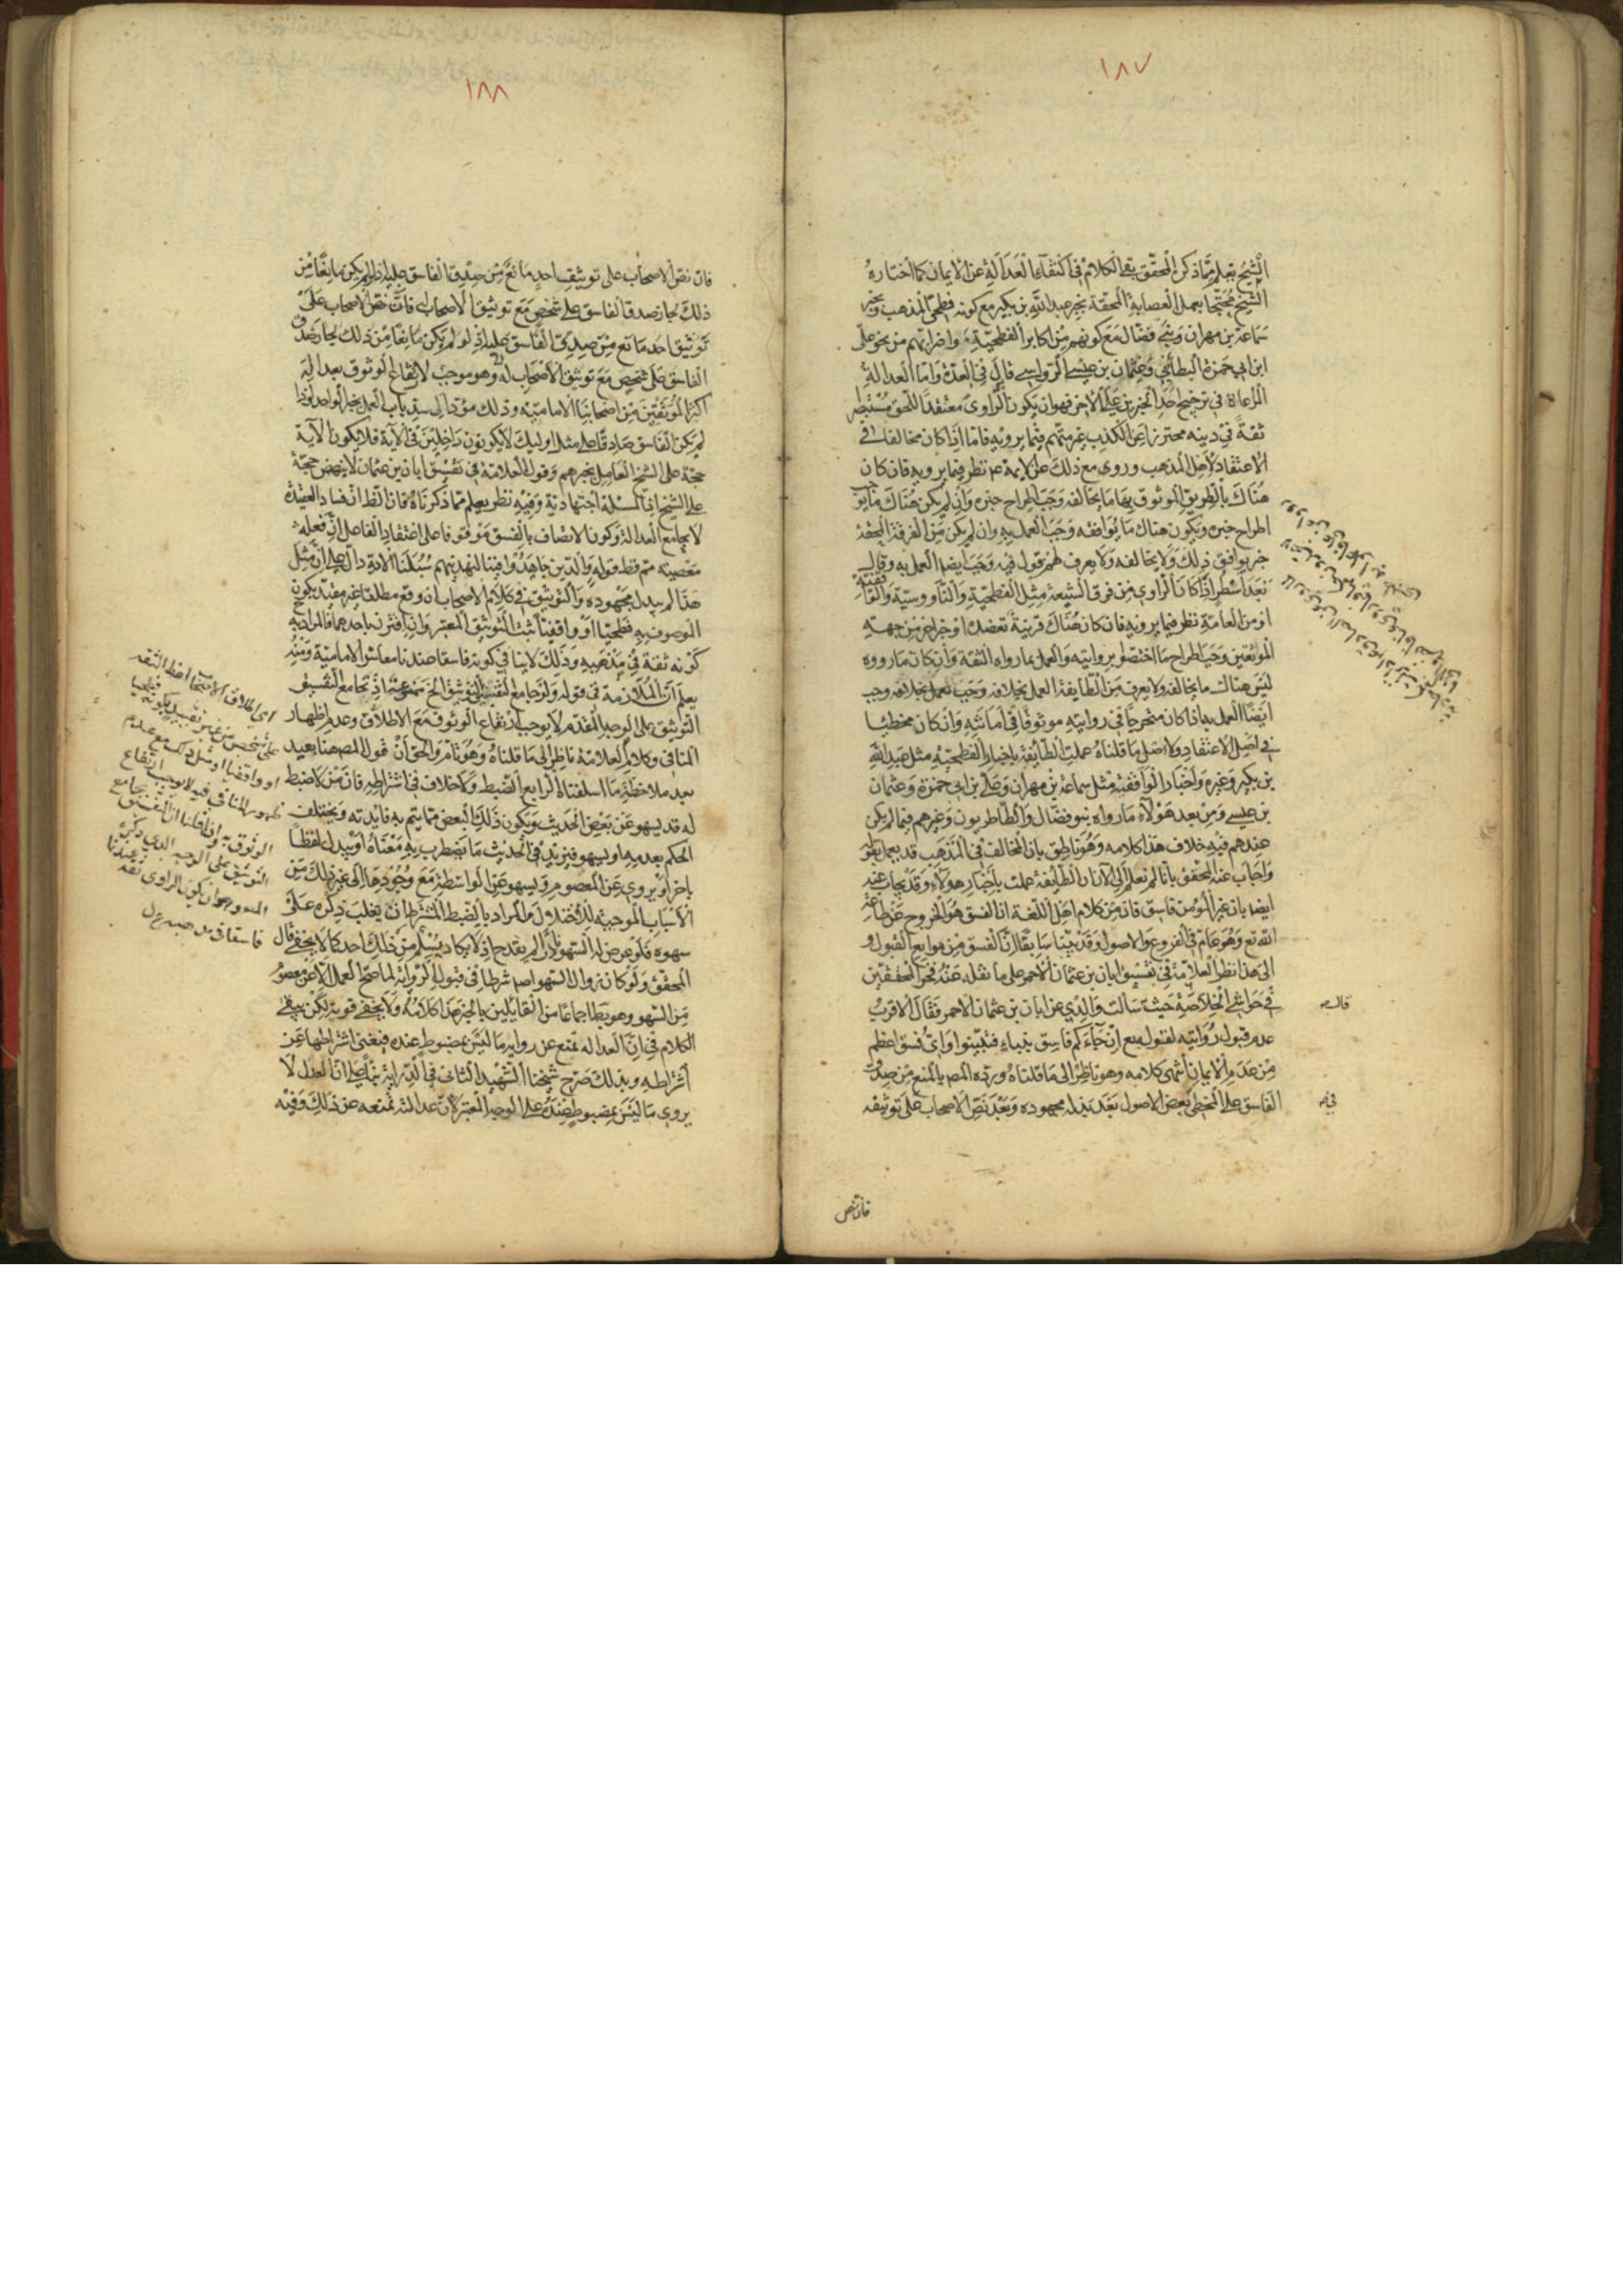 ١٨٧
الشيخ يعلم مما ذكر المحقق بقي الكلام في اكتفاء العدالة عن الايمان كما اختاره
الشيخ محتجا بعمل العصابة المحقة بخبر عبد الله بن بكير مع كونه فطحي المذهب وبخبر
سماعة بن مهران وبني فضال مع كونهم من اكابر الفطحية واضرابهم من نحو علي
ابن ابي حمزة البطائني وعثمان بن عيسى الرواسي قال في العدة واما العدالة
المراعاة في ترجيح احد الخبرين على الاخر فهو ان يكون الراوي معتقدا للحق مستبصرا
ثقة في دينه محترزا عن الكذب غير متهم فيما يرويه فاما اذا كان مخالفا في
الاعتقاد لاهل المذهب وروى مع ذلك على الايمة ع نظر فيما يرويه فان كان
هناك بالطريق الموثوق بها ما يخالفه وجب اطراح خبره وان لم يكن هناك ما يوجب
اطراح خبره ويكون هناك ما يوافقه وجب العمل به وان لم يكن من الفرقة المحقة
خبر يوافق ذلك ولا يخالفه ولا يعرف لهم قول فيه وجب ايضا العمل به وقال
بعد اسطر اذا كان الراوي من فرق الشيعة مثل الفطحية والناووسية والواقفية
او من العامة نظر فيما يرويه فان كان هناك قرينة تعضده او خبر اخر من جهة
الموثقين وجب اطراح ما اختصوا بروايته والعمل بما رواه الثقة وان كان ما رووه
ليس هناك ما يخالفه ولا يعرف من الطايفة العمل بخلافه وجب العمل بخلافه وجب
ايضا العمل به اذا كان متحرجا في روايته موثوقا في امانته وان كان مخطئا
في اصل الاعتقاد ولاجل ما قلناه عملت الطايفة باخبار الفطحية مثل عبد الله
بن بكير وغيره واخبار الواقفية مثل سماعة بن مهران وعلي بن ابي حمزة وعثمان
بن عيسى ومن بعد هؤلاء ما رواه بنو فضال والطاطريون وغيرهم فيما لم يكن
عندهم فيه خلاف هذا كلامه وهو ناطق بان المخالف في المذهب قد يعمل بقوله
واجاب عنه المحقق بانا لم نعلم الى الان ان الطايفة عملت باخبار هؤلاء وقد يجاب عنه
ايضا بان غير المؤمن فاسق فان من كلام اهل اللغة ان الفسق هو الخروج عن طاعة
الله تع وهو عام في الفروع والاصول وقد بينا سابقا ان الفسق من موانع القبول و
الى هذا نظر العلامة في تفسيق ابان بن عثمان الاحمر على ما نقله عنه فخر المحققين
في حواشي الخلاصة حيث سالت والدي عن ابان بن عثمان الاحمر فقال الاقرب
عدم قبول روايته لقوله تع ان جاءكم فاسق بنباء فتبينوا واي فسق اعظم
من عدم الايمان انتهى كلامه وهو ناظر الى ما قلناه ورده المص بالمنع من صدق
الفاسق على المخطي بعض الاصول بعد بذله مجهوده وبعد نص الاصحاب على توثيقه
قال
فان نص
١٨٨
فان نص الاصحاب على توثيق احد مانع من صدق الفاسق عليه اذ لو لم يكن مانعا من
ذلك لجاز صدق الفاسق على شخص مع توثيق الاصحاب له فان نص الاصحاب على
توثيق احد مانع من صدق الفاسق عليه اذ لو لم يكن مانعا من ذلك لجاز صدق
الفاسق على شخص مع توثيق الاصحاب له وهو موجب لارتفاع الوثوق بعدالة
اكثر الموثقين من اصحابنا الامامية وذلك مؤد الى سد باب العمل بخبر الواحد واذا
لم يكن الفاسق صادقا على مثل اوليك لا يكونون داخلين في الاية فلا يكون الاية
حجة على الشيخ العامل بخبرهم وقول العلامة في تفسيق ابان بن عثمان لا ينهض حجة
على الشيخ اذ المسئلة اجتهادية وفيه نظر يعلم مما ذكرناه فان الظ ان فساد العقيدة
لا يجامع العدالة وكون الاتصاف بالفسق موقوفا على اعتقاد الفاعل ان فعله
معصية مم وظ قوله والذين جاهدوا فينا لنهدينهم سبلنا الاية دال على ان مثل
هذا لم يبذل مجهوده والتوثيق في كلام الاصحاب ان وقع مطلقا غير مقيد بكون
الموصوف به فطحيا او واقفيا ثبت التوثيق المعتبر وان اقترن باحدهما فالمراد به
كونه ثقة في مذهبه وذلك لا ينافي كونه فاسقا عندنا معاشر الامامية ومنه
يعلم ان الملازمة في قوله ولو جامع التفسيق التوثيق الخ ممنوعة اذ تجامع التفسيق
التوثيق على الوجه المقدم لا يوجب ارتفاع الوثوق مع الاطلاق وعدم اظهار
المنافي وكلام العلامة ناظر الى ما قلناه وهو تام والحق ان قول المص هنا بعيد
بعد ملاحظة ما اسلفناه الرابع الضبط ولا خلاف في اشتراطه فان من لا ضبط
له قد يسهو عن بعض الحديث ويكون ذلك البعض مما يتم به فايدته ويختلف
الحكم بعدمه او يسهو فيزيد في الحديث ما يضطرب به معناه او يبدل لفظا
باخر او يروي عن المعصوم ويسهو عن الواسطة مع وجودها الى غير ذلك من
الاسباب الموجبة للاختلال والمراد بالضبط المشترط ان يغلب ذكره على
سهوه فلو عرض له السهو نادرا لم يقدح اذ لا يكاد يسلم من ذلك احد كما لا يخفى قال
المحقق ولو كان زوال السهو اصلا شرطا في قبول الرواية لما صح العمل الا عن معصوم
من السهو وهو بط اجماعا من القايلين بالخبر هذا كلامه ولا يخفى قوته لكن يبقى
الكلام في ان العدالة تمنع عن رواية ما ليس بمضبوط عنده فيغني اشتراطها عن
اشتراطه وبذلك صرح شيخنا الشهيد الثاني في الدراية بناء على ان العدل لا
يروي ما ليس بمضبوط عنده على الوجه المعتبر لان عدالته تمنعه عن ذلك وفيه
اي اطلاق الاصحاب لفظ الثقة
على شخص من غير تقييد بكونه فطحيا
او واقفيا او مثل ذلك مع عدم
ظهور المنافي فيه لا يوجب ارتفاع
الوثوق وان قلنا ان التفسيق يجامع
التوثيق على الوجه الذي ذكره